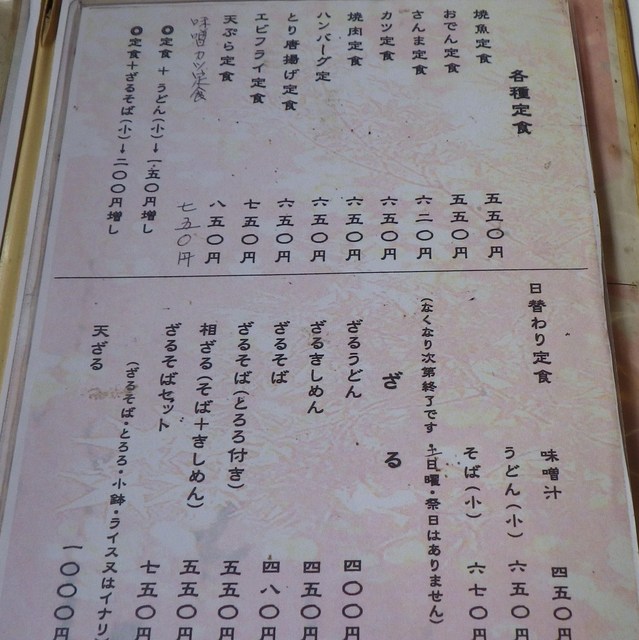 各種定食
焼魚定食 五五〇円
おでん定食 五五〇円
さんま定食 六二〇円
カツ定食 六五〇円
焼肉定食 六五〇円
ハンバーグ定 六五〇円
とり唐揚げ定食 六五〇円
エビフライ定食 七五〇円
天ぷら定食 八五〇円
味噌カツ定食 七五〇円
◎定食+うどん(小)→一五〇円増し
◎定食+ざるそば(小)→二〇〇円増し
日替わり定食
味噌汁 四五〇
うどん(小) 六五〇円
そば(小) 六七〇円
(なくなり次第終了です・土日曜・祭日はありません)
ざる
ざるうどん 四〇〇円
ざるきしめん 四五〇円
ざるそば 四八〇円
ざるそば(とろろ付き) 五五〇円
相ざる(そば+きしめん) 五五〇円
ざるそばセット 七五〇円
(ざるそば・とろろ・小鉢・ライス又はイナリ
天ざる 一〇〇〇円